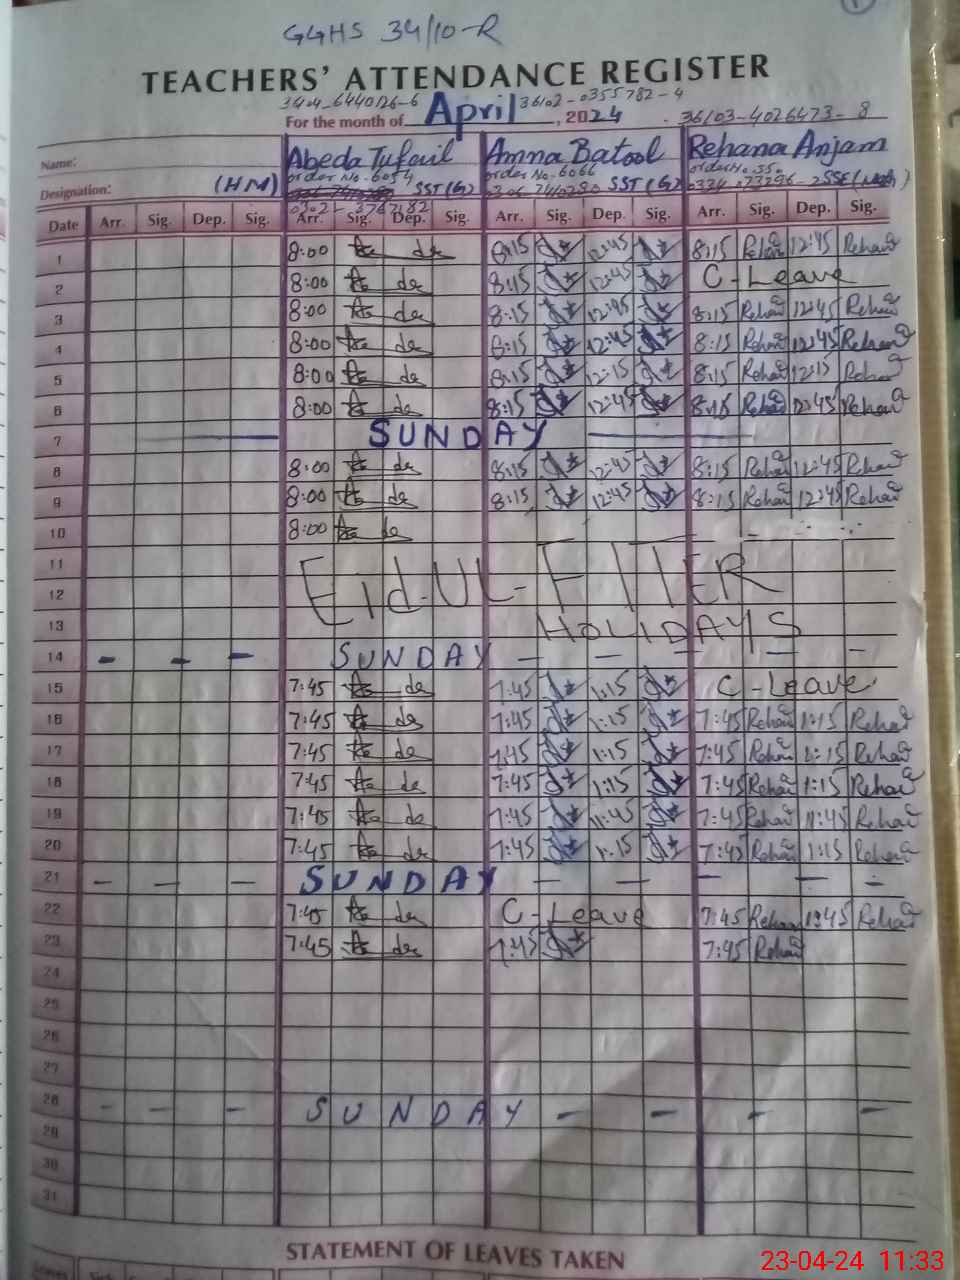 GGHS 34/10-R
TEACHERS' ATTENDANCE REGISTER
3404-6440126-6 36102-0355782-4
For the month of April, 2024 36103-4026473-8
Name: Abeda Tufail Amna Batool Rehana Anjam
order No. 6054 order No. 6066 order No. 35
Designation: (HM) SST(G) SST(G) SSE(Math)
Date Arr. Sig. Dep. Sig. Arr. Sig. Dep. Sig. Arr. Sig. Dep. Sig. Arr. Sig. Dep. Sig.
1 8:00 8:15 12:45 8:15 Rehana 12:45 Rehana
2 8:00 8:15 12:45 C-Leave
3 8:00 8:15 12:45 8:15 Rehana 12:45 Rehana
4 8:00 8:15 12:45 8:15 Rehana 12:45 Rehana
5 8:00 8:15 12:15 8:15 Rehana 12:15 Rehana
6 8:00 8:15 12:45 8:15 Rehana 12:45 Rehana
7 SUNDAY
8 8:00 8:15 12:45 8:15 Rehana 12:45 Rehana
9 8:00 8:15 12:45 8:15 Rehana 12:45 Rehana
10 8:00
11
12 Eid-UL-FITER
13 HOLIDAYS
14 SUNDAY
15 7:45 7:45 1:15 C-Leave
16 7:45 7:45 1:15 7:45 Rehana 1:15 Rehana
17 7:45 7:45 1:15 7:45 Rehana 1:15 Rehana
18 7:45 7:45 1:15 7:45 Rehana 1:15 Rehana
19 7:45 7:45 11:45 7:45 Rehana 11:45 Rehana
20 7:45 7:45 1:15 7:45 Rehana 1:15 Rehana
21 SUNDAY
22 7:45 C-Leave 7:45 Rehana Rehana
23 7:45 7:45 7:45 Rehana
24
25
26
27
28 SUNDAY
29
30
31
STATEMENT OF LEAVES TAKEN
23-04-24 11:33